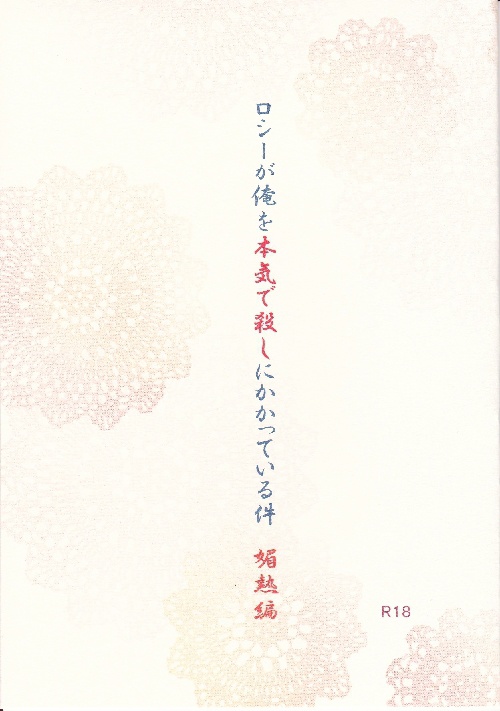 ロシーが俺を本気で殺しにかかっている件 媚熱編
R18